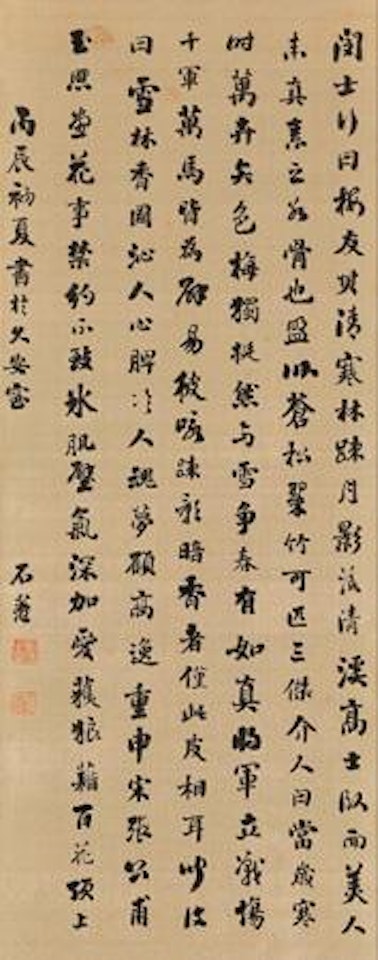 閔士行曰梅友則清寒林踈月影落清溪高士臥而美人
來真素之為骨也盟以蒼松翠竹可匹三傑介人曰當歲寒
時萬卉無色梅獨挺然與雪爭春有如真將軍立戰場
千軍萬馬皆為辟易彼咏踈影暗香者僅此皮相耳
曰雪林香國沁人心脾冷人魂夢願高逸重申宋張公甫
玉照堂花事禁約不致冰肌壁氣深加愛護狼藉百花頭上
丙辰初夏書於久安室
石